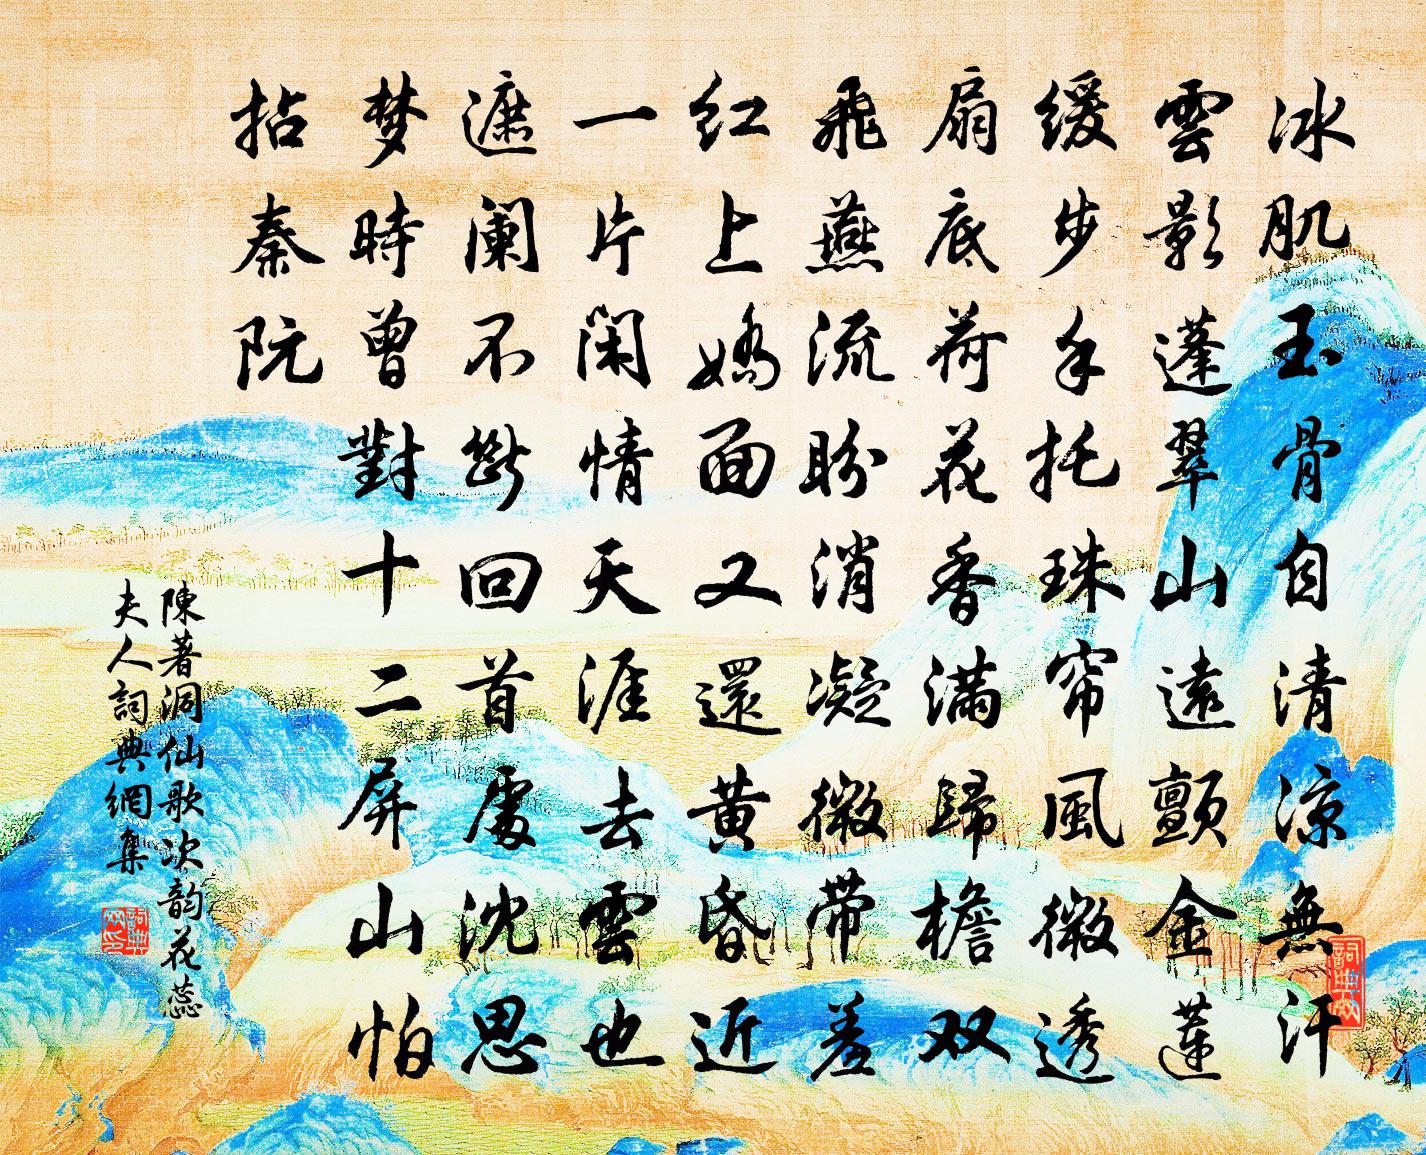 冰肌玉骨自清凉無汗
雲影蓬翠山遠顫金蓮
缓步手托珠帘風微透
扇底荷花香满歸檐双
飛燕流盼消凝微带羞
红上嬌面又還黄昏近
一片闲情天涯去雲也
遮阑不断回首處沈思
梦時曾對十二屏山怕
拈秦阮
陳著洞仙歌次韵花蕊
夫人詞典網集
詞典网